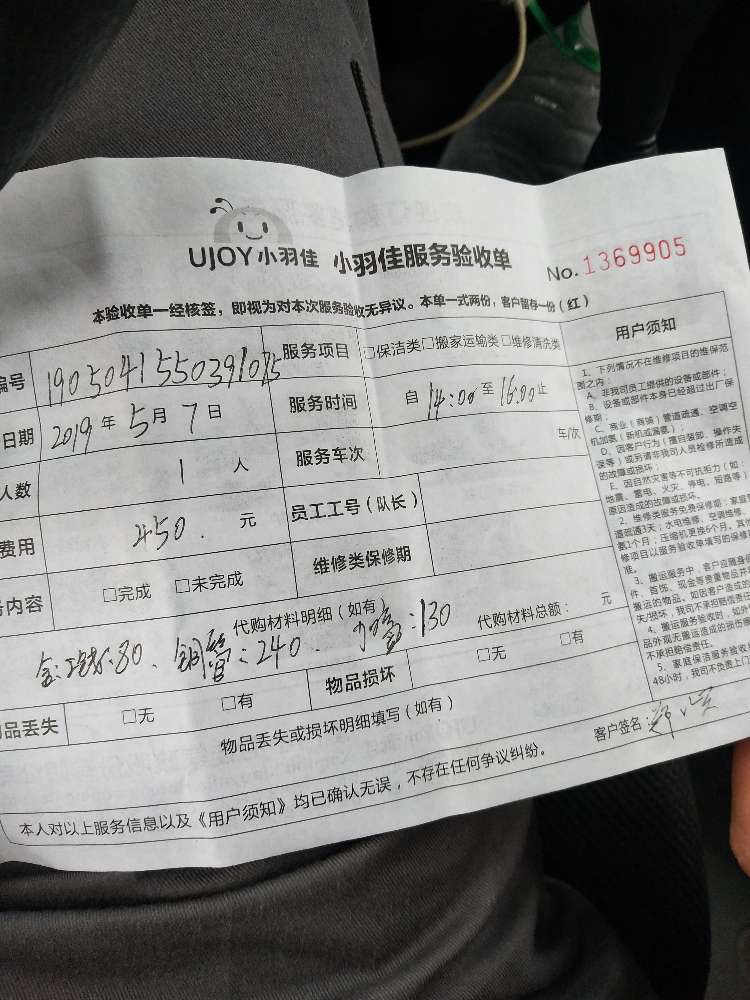 UJOY小羽佳 小羽佳服务验收单 No.1369905
本验收单一经核签，即视为对本次服务验收无异议。本单一式两份，客户留存一份（红）
编号 服务项目 □保洁类□搬家运输类□维修清洗类
日期 2019年5月7日 服务时间 自14:00至16:00止
人数 1人 服务车次 车/次
费用 450.元 员工工号（队长）
内容 □完成 □未完成 维修类保修期
代购材料明细（如有） 代购材料总额： 元
:80、铜管:240、:130
品丢失 □无 □有 物品损坏 □无 □有
物品丢失或损坏明细填写（如有）
客户签名:
本人对以上服务信息以及《用户须知》均已确认无误，不存在任何争议纠纷。
用户须知
1、下列情况不在维修项目的维保范
围之内：
A、非我司员工提供的设备或部件；
B、设备或部件本身已经超过出厂保
修期；
C、商业（商铺）管道疏通、空调空
机加氨（新机或漏氨）；
D、因客户行为（擅自装卸、操作失
误等）或另请非我司人员检修所造成
的故障或损坏；
E、因自然灾害等不可抗拒力（如：
地震、雷电、火灾、停电、短路等）
原因造成的故障或损坏。
2、维修类服务免费保修期：家庭管
道疏通3天；水电维修、空调维修、
氨1个月；压缩机更换6个月。其他
修项目以服务验收单填写的保修期
准。
3、搬运服务中，客户应随身保
件、首饰、现金等贵重物品并
搬运的物品。如因客户造成的
失/损坏，我司不承担赔偿责任
4、搬运服务验收时，如外
品外观无搬运造成的损伤
不承担赔偿责任。
5、家庭保洁服务验收
48小时，我司不负责上门